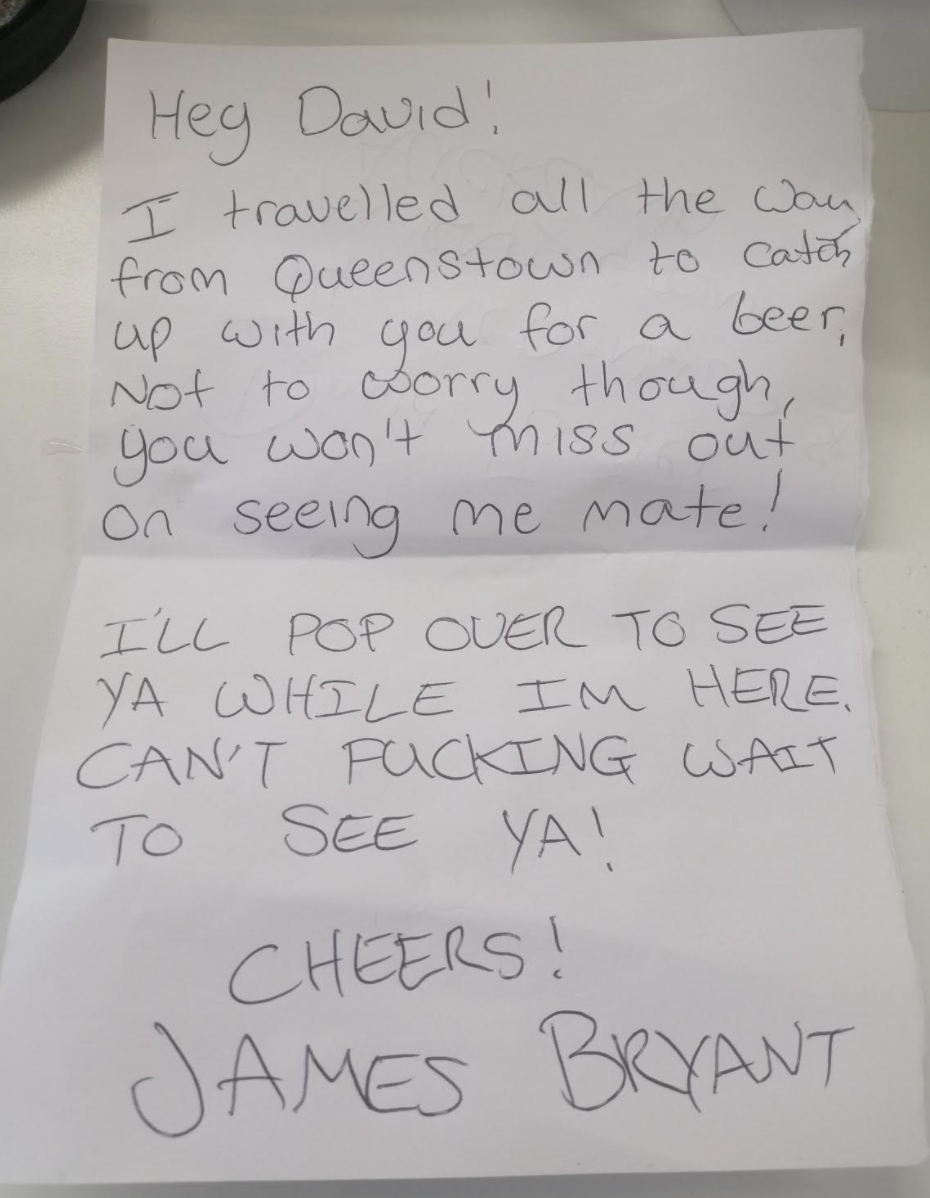 Hey David!
I travelled all the way
from Queenstown to catch
up with you for a beer.
Not to worry though,
you won't miss out
on seeing me mate!
I'LL POP OVER TO SEE
YA WHILE IM HERE.
CAN'T FUCKING WAIT
TO SEE YA!
CHEERS!
JAMES BRYANT